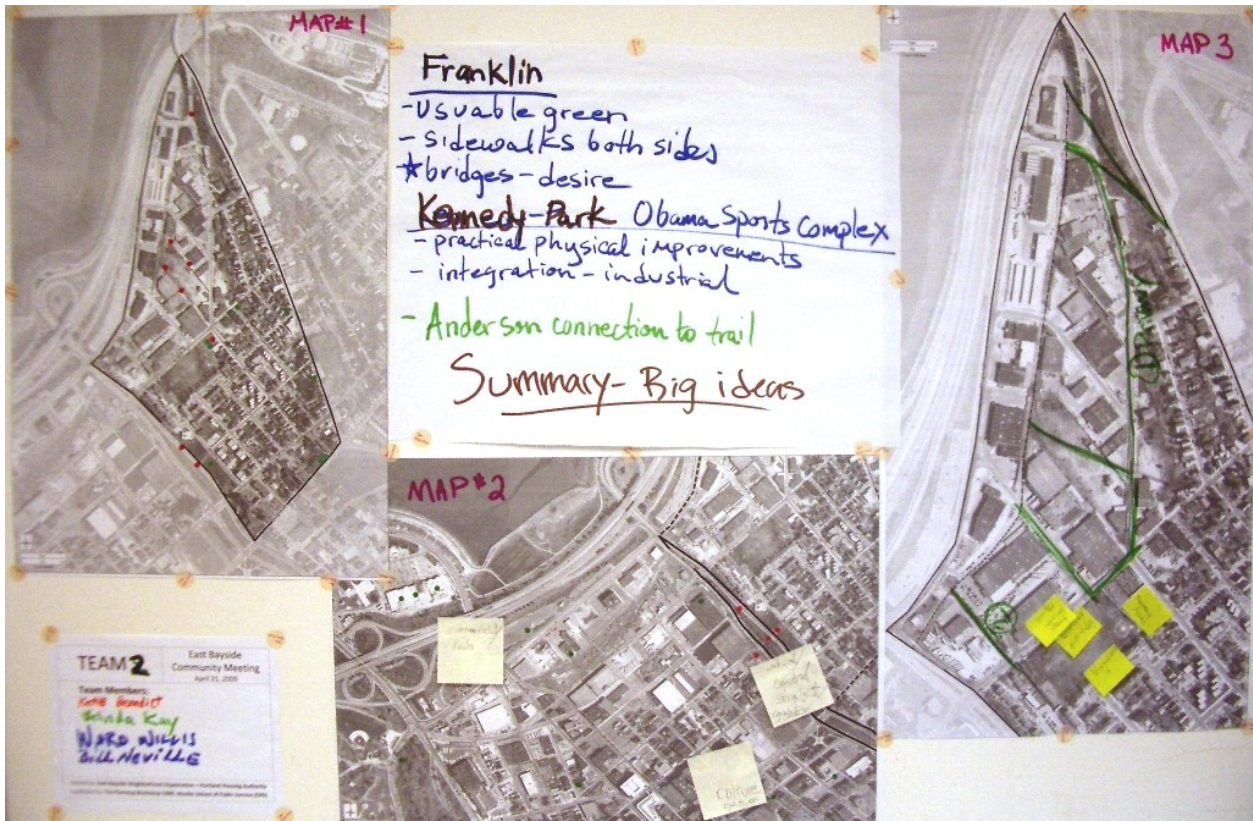 MAP# 1
Franklin
- usuable green
- sidewalks both sides
★bridges - desire
Kennedy-Park Obama Sports Complex
- practical physical improvements
- integration - industrial
- Anderson connection to trail
Summary - Big ideas
MAP 3
MAP #2
Culture
TEAM 2
East Bayside
Community Meeting
April 21, 2009
Team Members:
Katie Benedict
Belinda Kay
WARD WILLIS
Bill NEVILLE